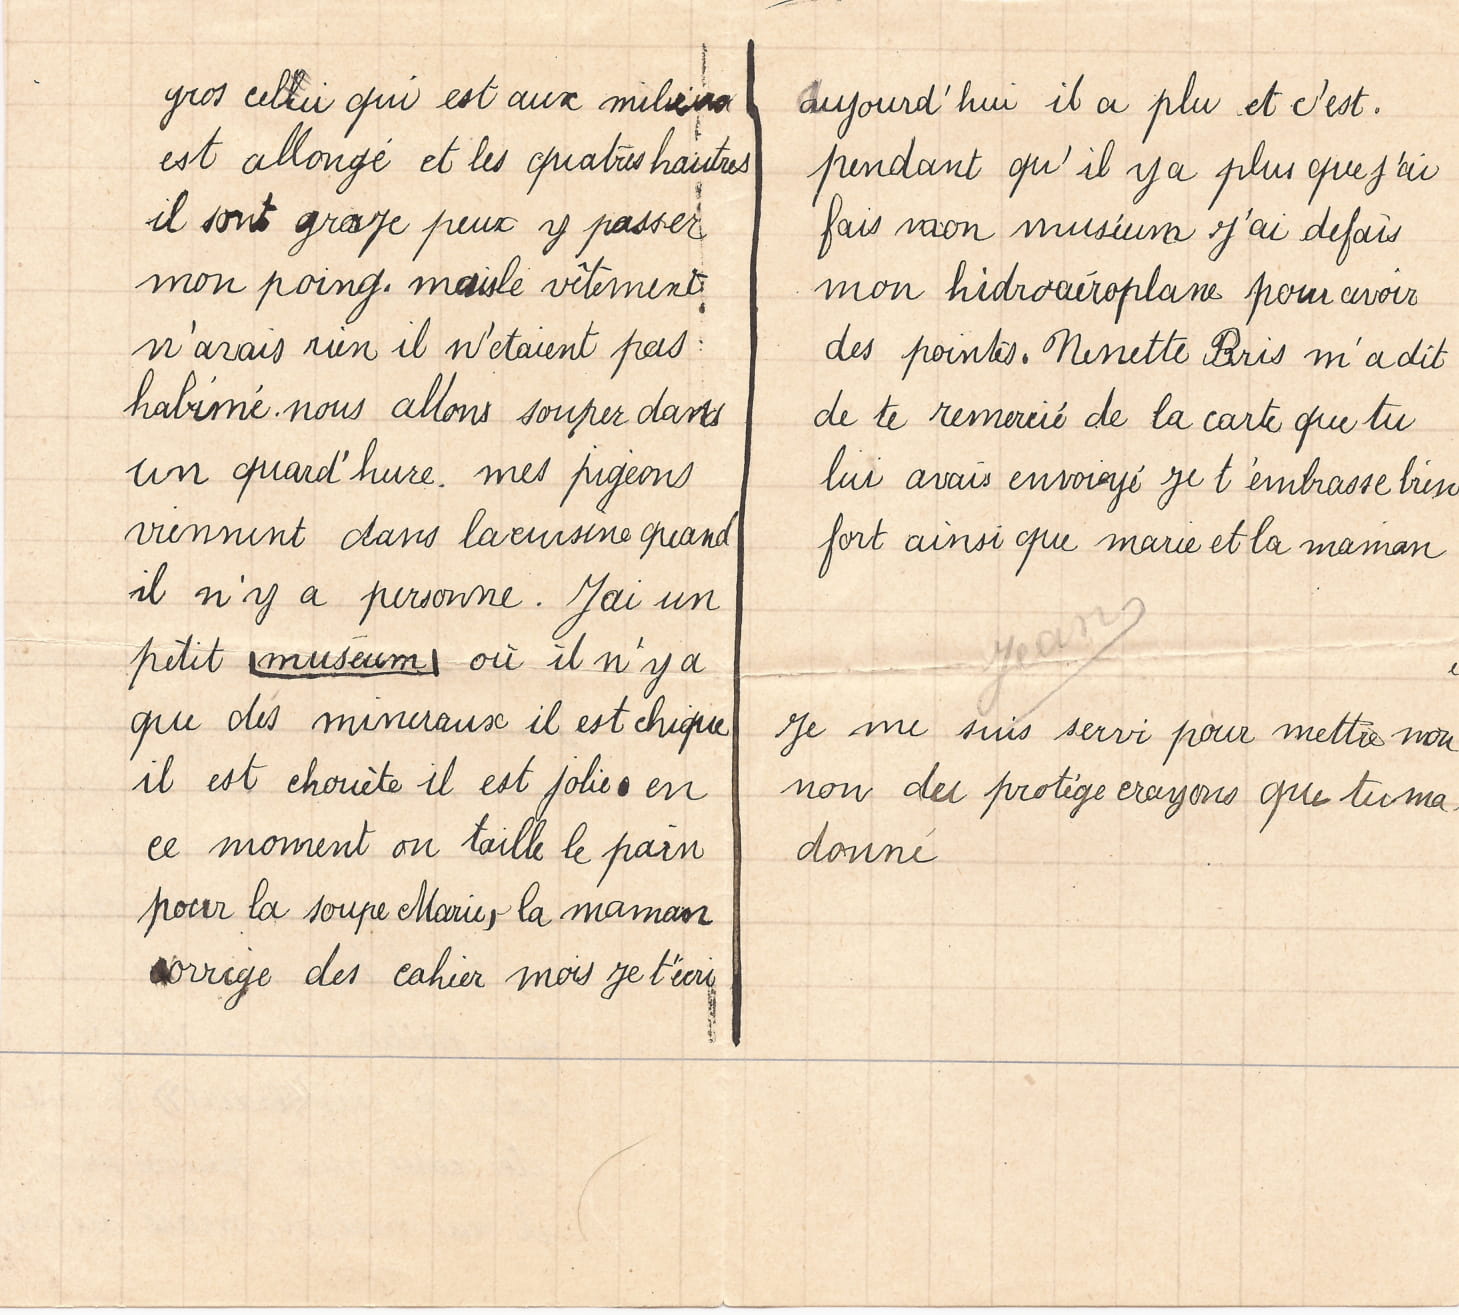 gros cellui qui est aux milieux
est allongé et les quatres hautres
il sont gros je peux y passer
mon poing. mais le vêtement
n'avais rien il n'etaient pas
habimé. nous allons souper dans
un quard'hure. mes pigeons
viennent dans la cuisine quand
il n'y a personne. J'ai un
petit muséum où il n'y a
que des mineraux il est chique
il est chouète il est jolie. en
ce moment on taille le pain
pour la soupe Marie, la maman
corrige des cahier mois je t'écri
aujourd'hui il a plu et c'est.
pendant qu'il y a plus que j'ai
fais mon muséum j'ai defais
mon hidroaéroplane pour avoir
des pointes. Nenette Bris m'a dit
de te remercié de la carte que tu
lui avais envoiyé je t'embrasse bien
fort ainsi que marie et la maman
Jean
Je me suis servi pour mettre mon
non du protège crayons que tu ma
donné